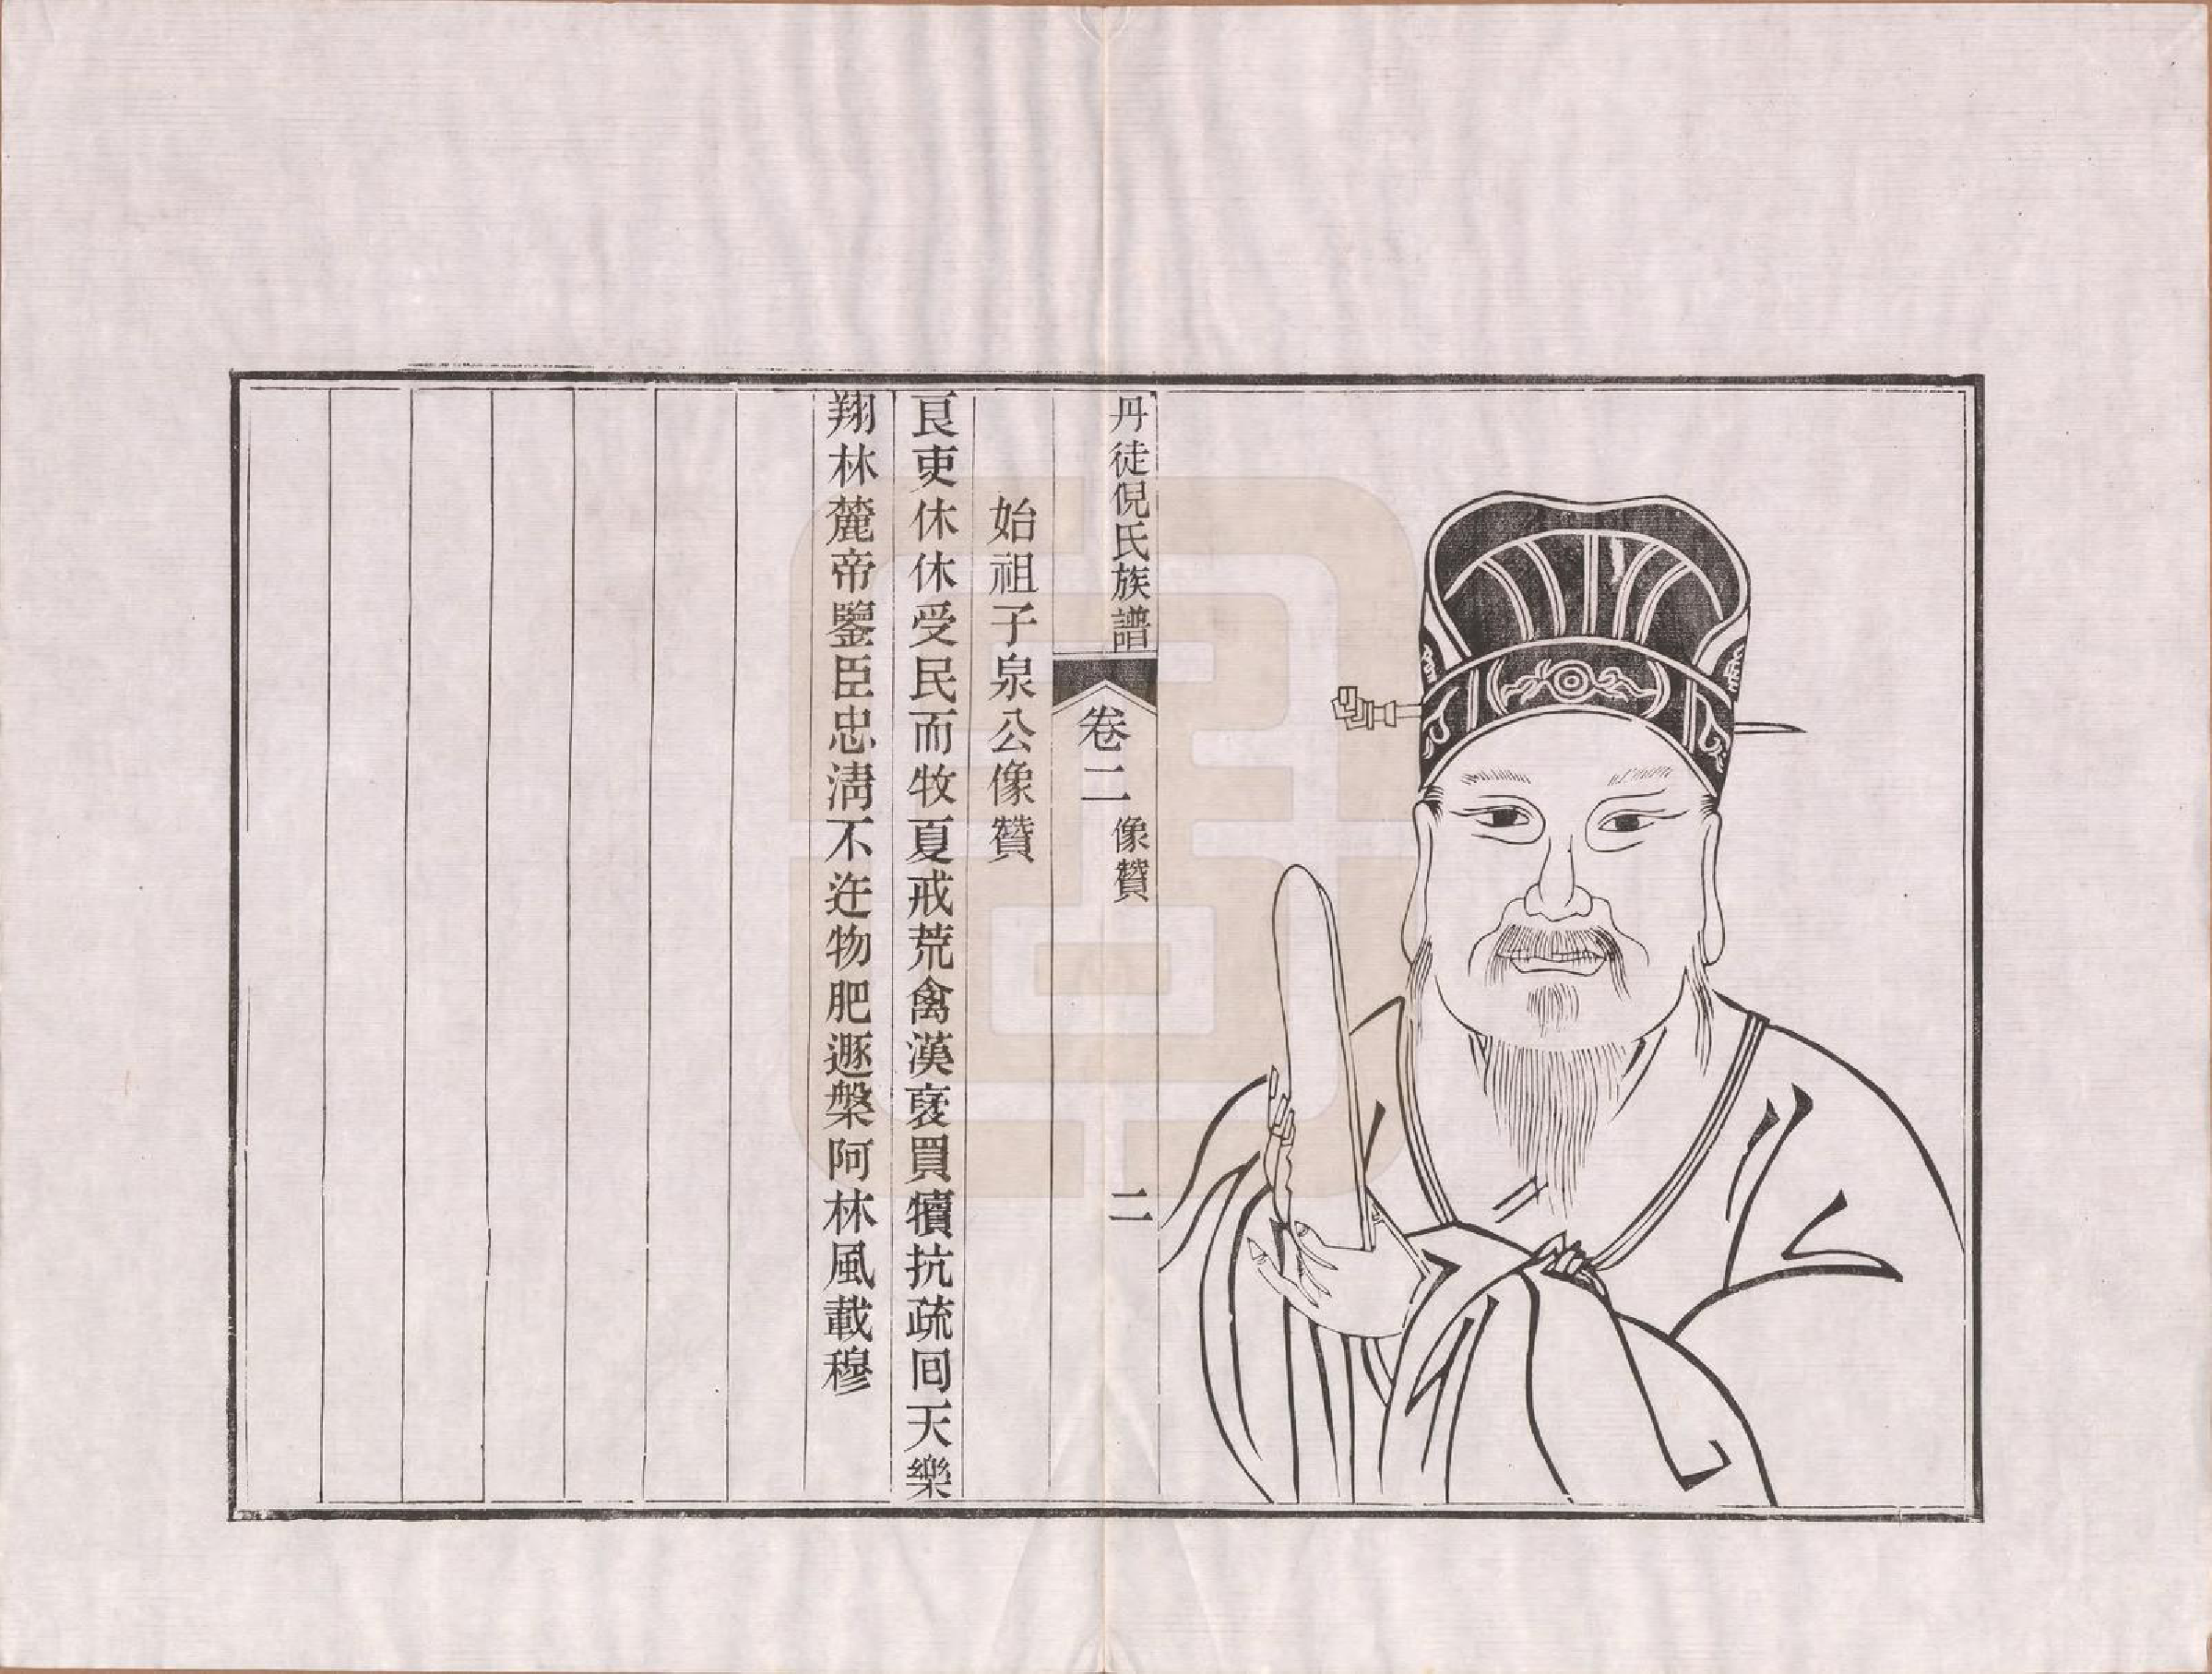 丹徒倪氏族譜
卷二
像贊
二
始祖子泉公像贊
良吏休休受民而牧夏戒荒禽漢褒買犢抗疏囘天樂
翔林麓帝鑒臣忠淸不迕物肥遯槃阿林風載穆